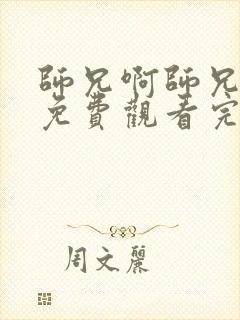 師兄啊師兄
免費觀看完
周文麗